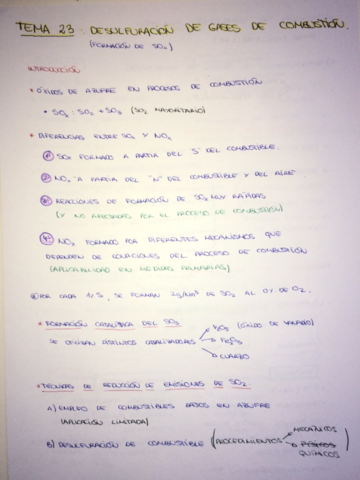 TEMA 23: DESULFURACIÓN DE GASES DE COMBUSTIÓN.
(FORMACIÓN DE SOx)
INTRODUCCIÓN
* ÓXIDOS DE AZUFRE EN PROCESOS DE COMBUSTIÓN
• SOx: SO2 + SO3 (SO2 MAYORITARIO)
* DIFERENCIAS ENTRE SOx Y NOx
1º SOx FORMADO A PARTIR DEL "S" DEL COMBUSTIBLE.
2º NOx A PARTIR DEL "N" DEL COMBUSTIBLE Y DEL AIRE
3º REACCIONES DE FORMACIÓN DE SO2 MUY RÁPIDAS
(Y NO AFECTADAS POR EL PROCESO DE COMBUSTIÓN)
4º NOx FORMADO POR DIFERENTES MECANISMOS QUE
DEPENDEN DE CONDICIONES DEL PROCESO DE COMBUSTIÓN
(APLICABILIDAD EN MEDIDAS PRIMARIAS)
POR CADA 1% S, SE FORMAN 2g/Nm³ DE SO2 AL 0% DE O2.
* FORMACIÓN CATALÍTICA DEL SO3
SE UTILIZAN DISTINTOS CATALIZADORES → V2O5 (ÓXIDO DE VANADIO)
→ Fe2O3
→ CUARZO
* TÉCNICAS DE REDUCCIÓN DE EMISIONES DE SO2
A) EMPLEO DE COMBUSTIBLES BAJOS EN AZUFRE
(APLICACIÓN LIMITADA)
B) DESULFURACIÓN DE COMBUSTIBLE (PROCEDIMIENTOS → MECÁNICOS
→ QUÍMICOS